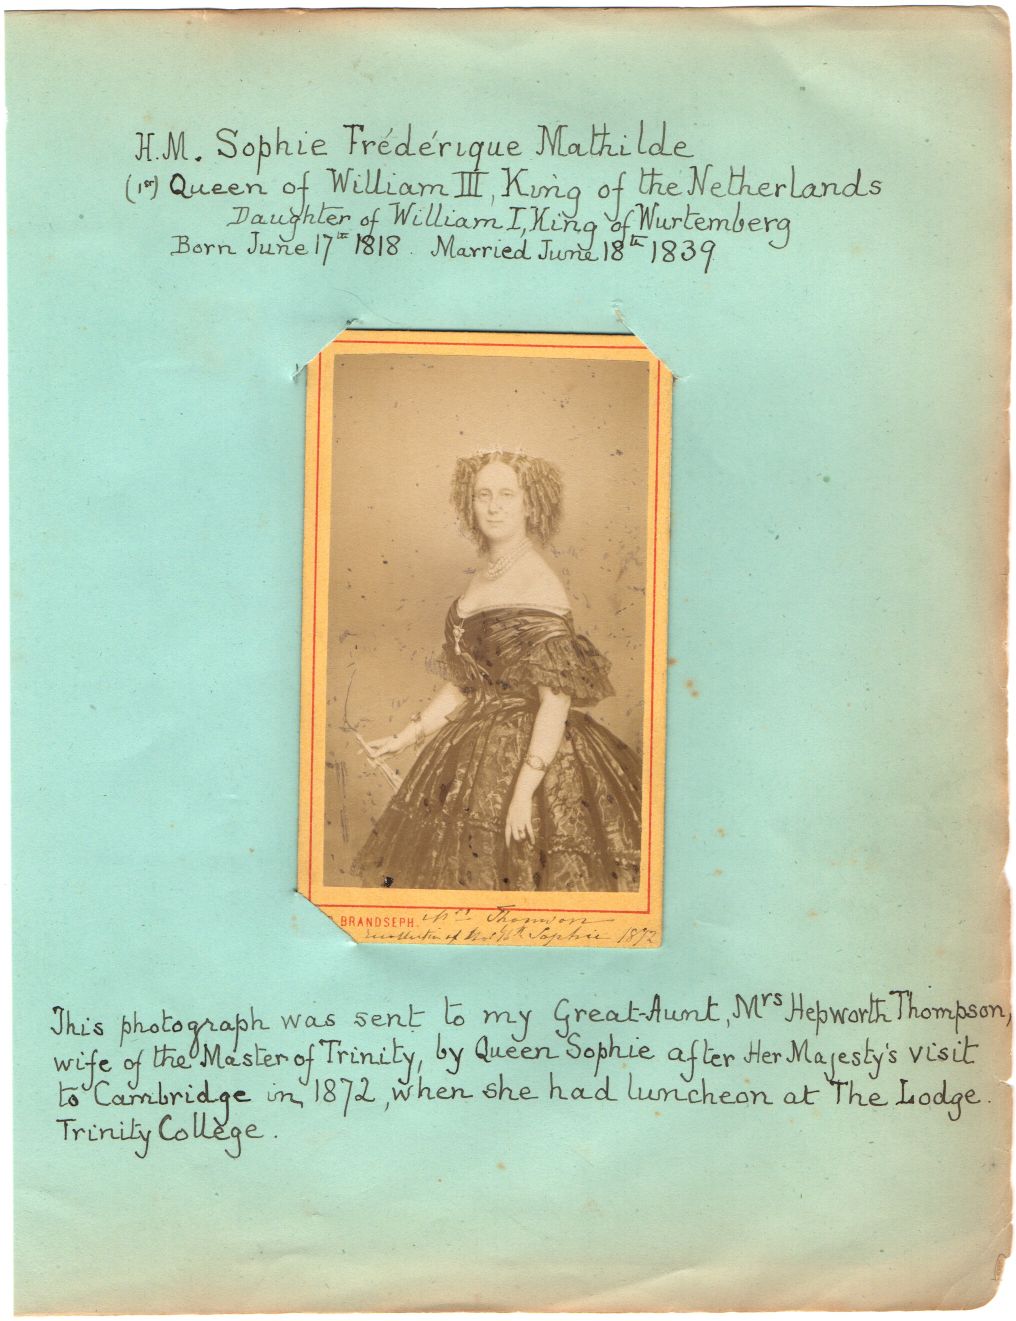 H.M. Sophie Frédérique Mathilde
(1st) Queen of William III, King of the Netherlands
Daughter of William I, King of Wurtemberg
Born June 17th 1818. Married June 18th 1839
BRANDSEPH. Mrs Thomson
of Sophie 1872
This photograph was sent to my Great-Aunt, Mrs Hepworth Thompson,
wife of the Master of Trinity, by Queen Sophie after Her Majesty's visit
to Cambridge in 1872, when she had luncheon at The Lodge.
Trinity College.